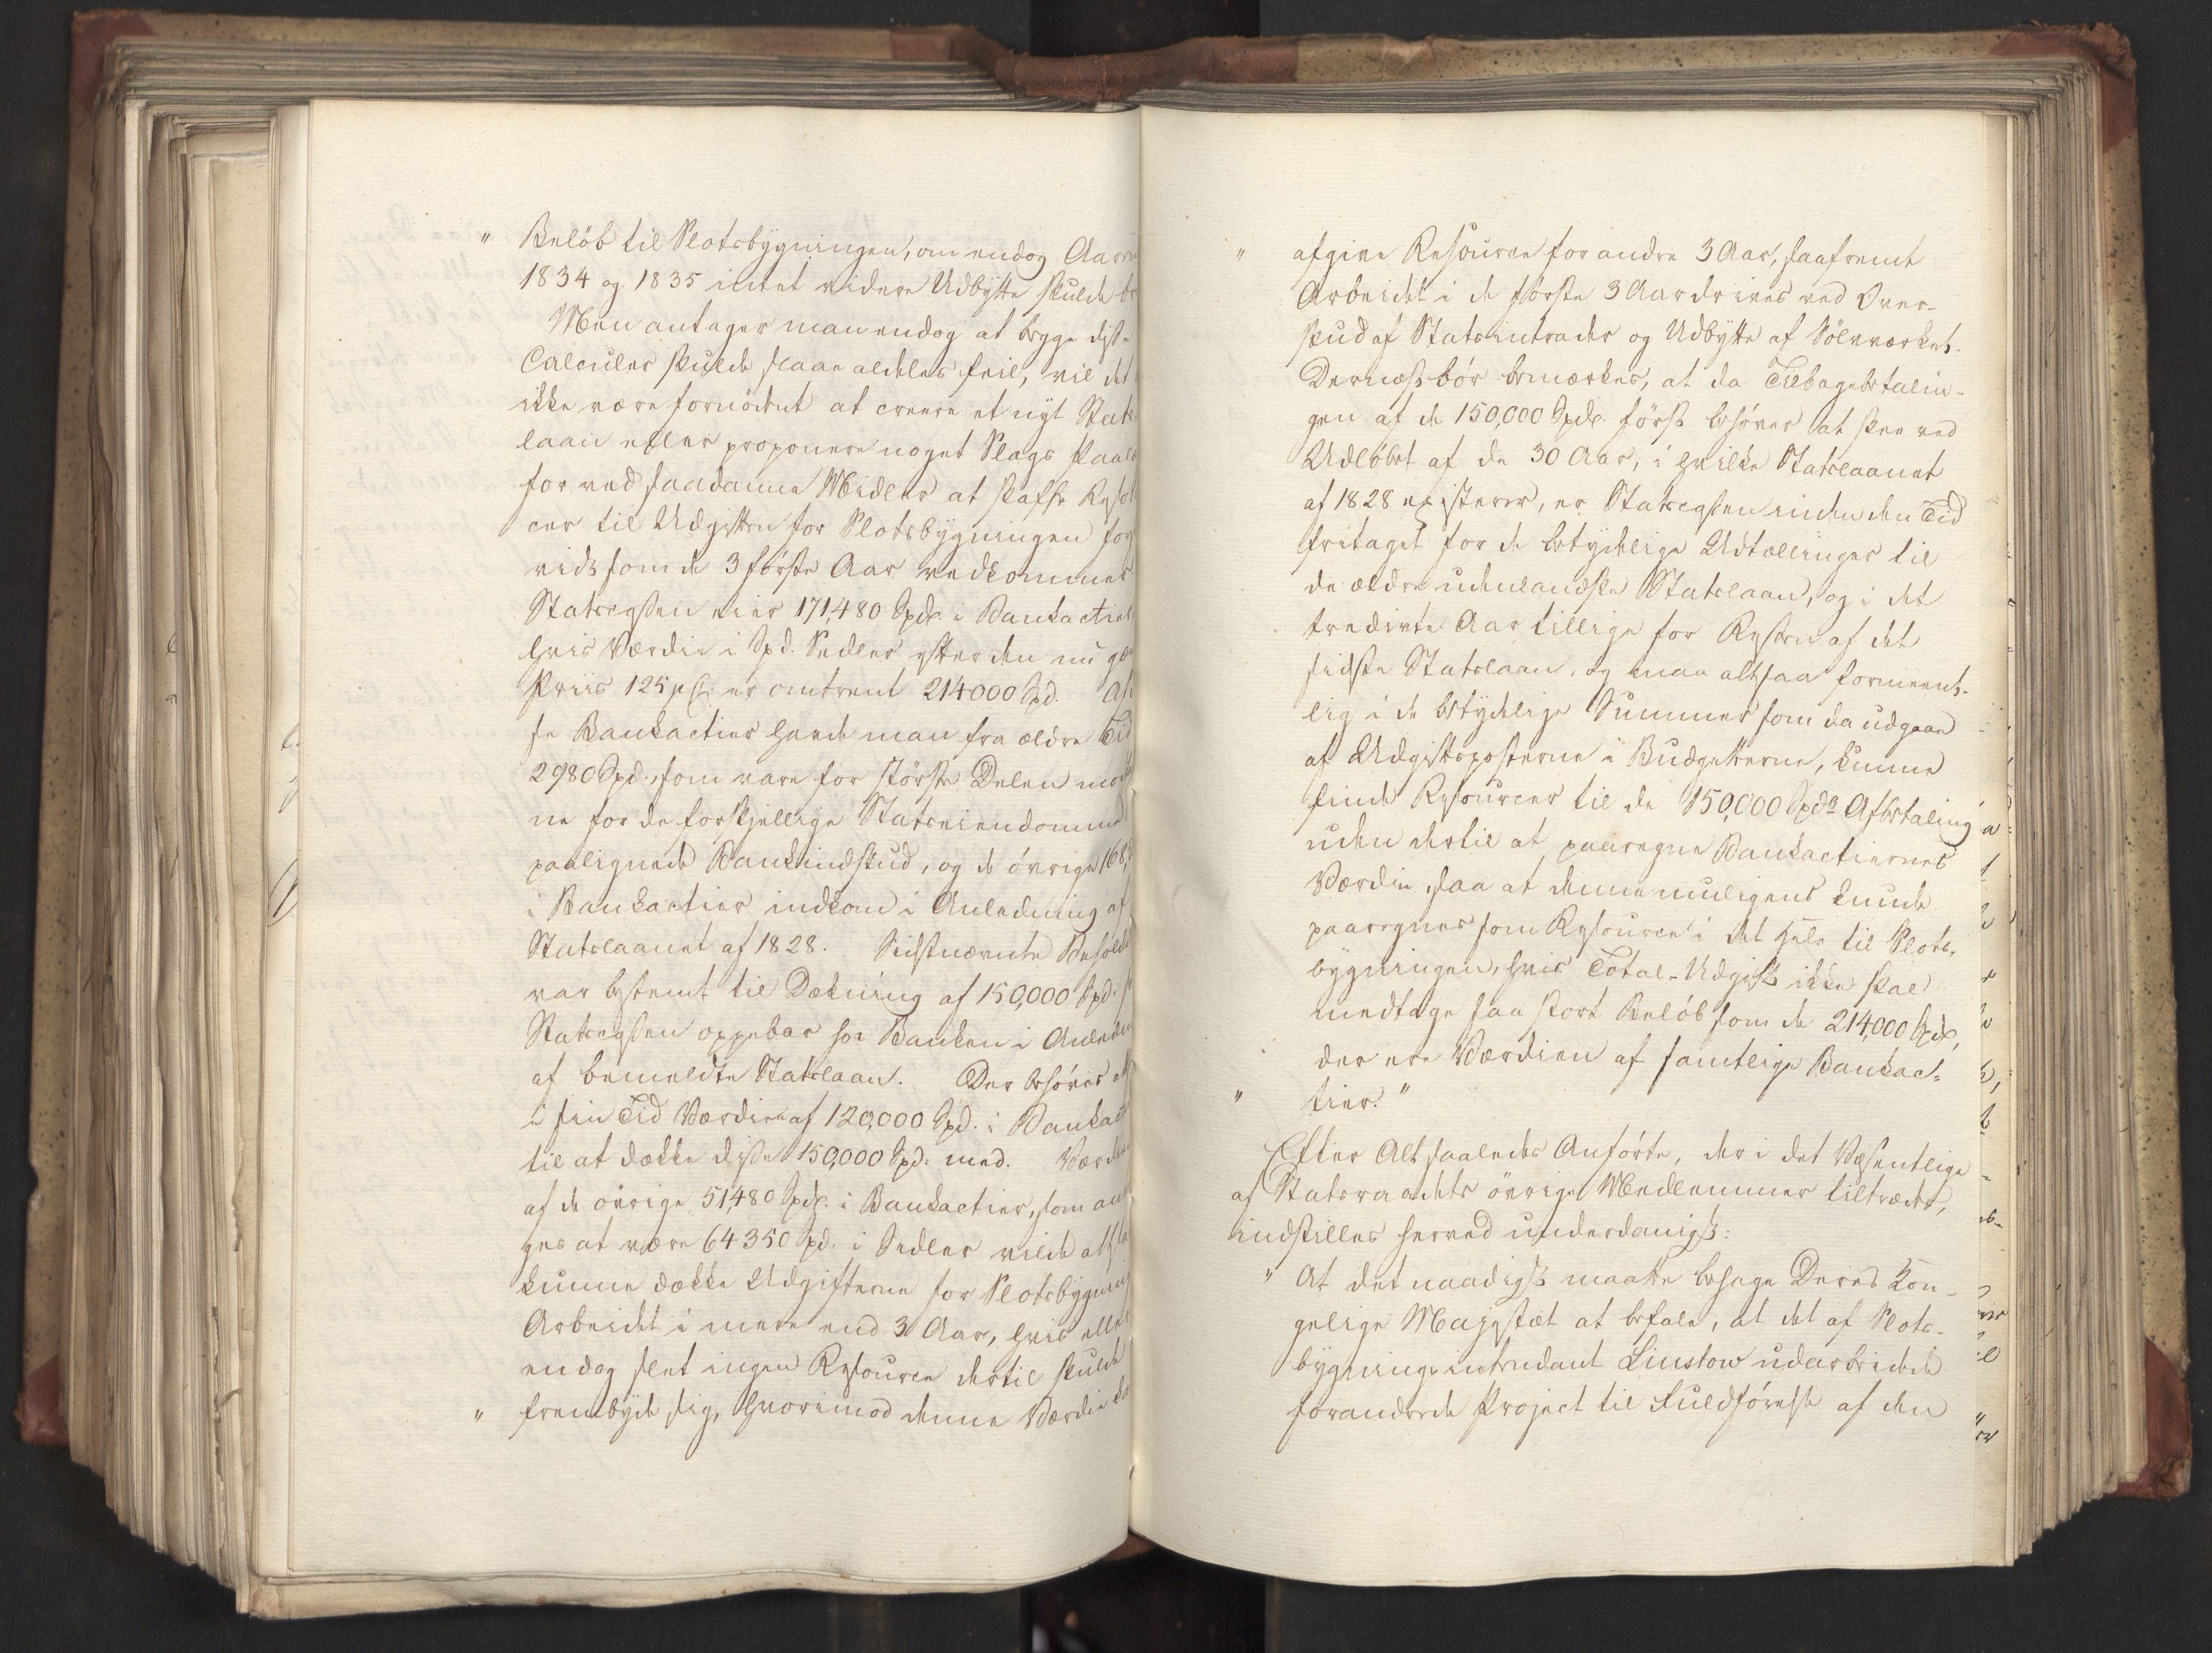 " Beløb til Slotsbygningen, om endog Aarene
1834 og 1835 intet videre Udbytte skulde
Men antager man endog at begge disse
Calculer skulde slaae aldeles feil, vil det
ikke være fornödent at creere et nyt Stats
laan eller proponere noget Slags Paal
for ved saadanne Midler at skaffe Resour
cer til Udgiften for Slotsbygningen for
vidt som de 3 förste Aar vedkommer
Statscassen eier 171,480 Spd. i Bankactier
hvis Værdie i Spd. Sedler efter den nu
Priis 125 pCt. er omtrent 214000 Spd. Af
se Bankactier havde man fra ældre Tid
2980 Spd., som vare for störste Delen
ne for de forskjellige Statseiendomme
paalignede Bankindskud, og de övrige 168,
i Bankactier indkom i Anledning af
Statslaanet af 1828. Sidstnævnte Behold
var bestemt til Dækning af 150,000 Spd.
Statscassen oppebar hos Banken i Anledn
af bemeldte Statslaan. Der behöves alt
i sin Tid Værdien af 120,000 Spd. i Bankact
til at dække disse 150,000 Spd. med. Værdien
af de övrige 51,480 Spd. i Bankactier, som an
ges at være 64350 Spd. i Sedler vilde altsaa
kunne dække Udgifterne for Slotsbygning
Arbeidet i mere end 3 Aar, hvis eller
endog slet ingen Resource dertil skulde
" frembyde sig, hvorimod denne Værdie
" afgive Resource for andre 3 Aar, saafremt
Arbeidet i de förste 3 Aar drives ved Over-
skud af Statsintrader og Udbytte af Sölvværket.
Dernæst bör bemærkes, at da Tilbagebetalin-
gen af de 150,000 Spd. först behöver at skee ved
Udløbet af de 30 Aar, i hvilke Statslaanet
af 1828 existerer, er Statscassen inden den Tid
fritaget for de betydelige Udtællinger til
de ældre udenlandske Statslaan, og i det
tredivte Aar tillige for Resten af det
sidste Statslaan, og man altsaa formeent-
lig i de betydelige Summer som da udgaae
af Udgiftsposterne i Budgetterne, kunne
finde Resourcer til de 150,000 Spds Afbetaling
uden dertil at paaregne Bankactiernes
Værdie, saa at denne muligens kunde
paaregnes som Resource i det Hele til Slots-
bygningen, hvis Total-Udgift ikke skal
medtage saa stort Beløb som de 214,000 Spd,
der ere Værdien af samtlige Bankac-
" tier."
Efter Alt saaledes Anförte, der i det Væsentlige
af Statsraadets övrige Medlemmer tiltrædes,
indstilles herved underdanigst:
" At det naadigst maatte behage Deres Kon-
gelige Majestæt at befale, at det af Slots-
bygningsintendant Linstow udarbeidede
forandrede Project til Fuldförelse af den